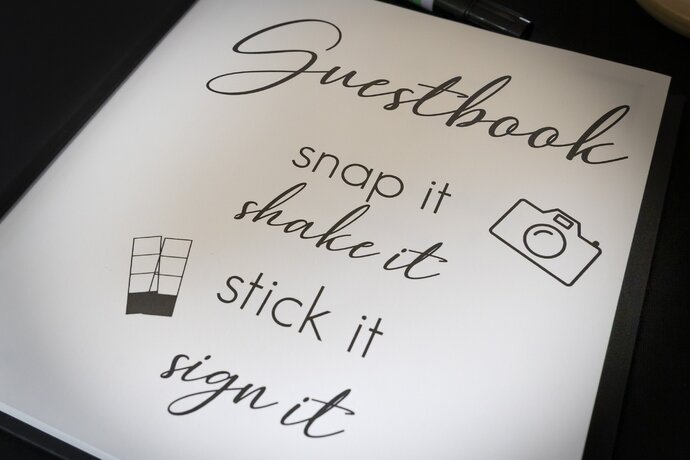 Guestbook
snap it
shake it
stick it
sign it